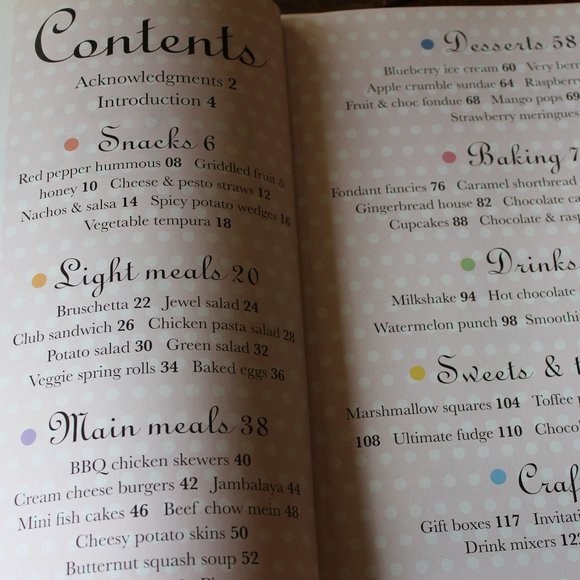 Contents
Acknowledgments 2
Introduction 4
Snacks 6
Red pepper hummous 08 Griddled fruit &
honey 10 Cheese & pesto straws 12
Nachos & salsa 14 Spicy potato wedges 16
Vegetable tempura 18
Light meals 20
Bruschetta 22 Jewel salad 24
Club sandwich 26 Chicken pasta salad 28
Potato salad 30 Green salad 32
Veggie spring rolls 34 Baked eggs 36
Main meals 38
BBQ chicken skewers 40
Cream cheese burgers 42 Jambalaya 44
Mini fish cakes 46 Beef chow mein 48
Cheesy potato skins 50
Butternut squash soup 52
Desserts 58
Blueberry ice cream 60 Very berr
Apple crumble sundae 64 Raspberr
Fruit & choc fondue 68 Mango pops 69
Strawberry meringues
Baking 7
Fondant fancies 76 Caramel shortbread
Gingerbread house 82 Chocolate ca
Cupcakes 88 Chocolate & rasp
Drinks
Milkshake 94 Hot chocolate
Watermelon punch 98 Smoothi
Sweets & t
Marshmallow squares 104 Toffee
108 Ultimate fudge 110 Choco
Craf
Gift boxes 117 Invitati
Drink mixers 122